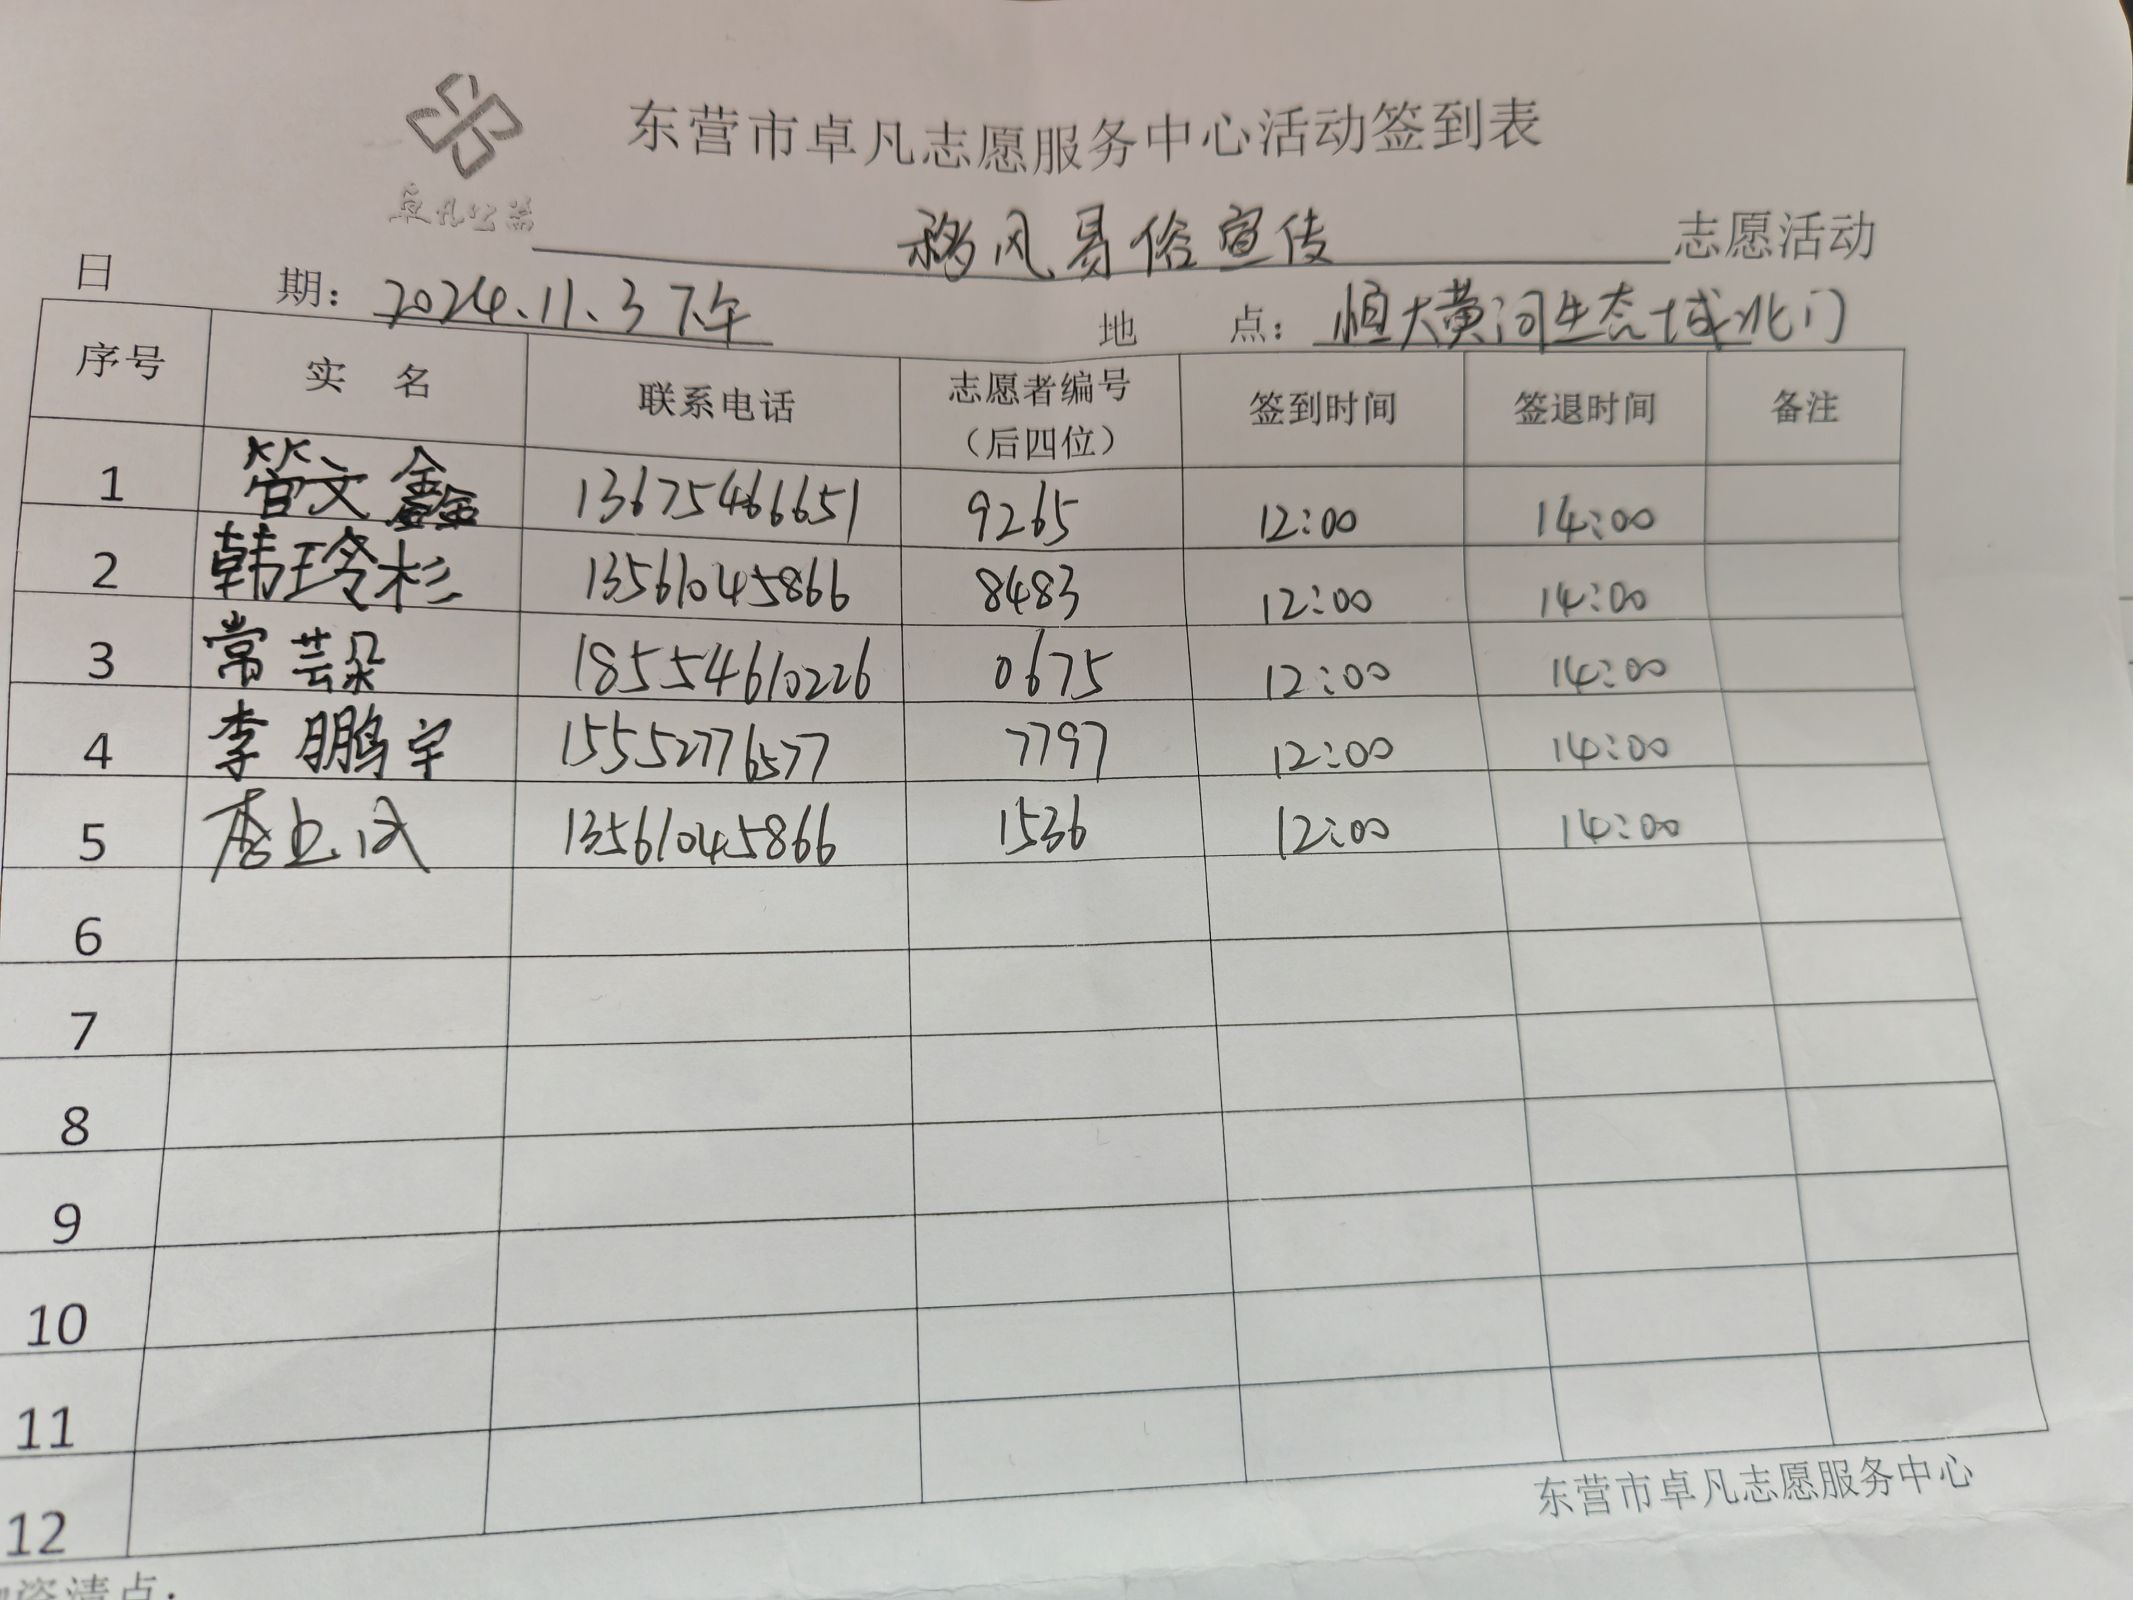 东营市卓凡志愿服务中心活动签到表
卓凡公益
移风易俗宣传 志愿活动
日 期: 2024.11.3下午 地 点: 恒大黄河生态城北门
序号 实 名 联系电话 志愿者编号(后四位) 签到时间 签退时间 备注
1 管文鑫 13675466651 9265 12:00 14:00
2 韩玲杉 13561045866 8483 12:00 14:00
3 常芸朵 18554610226 0675 12:00 14:00
4 李鹏宇 15552776577 7797 12:00 14:00
5 13561045866 1536 12:00 14:00
6
7
8
9
10
11
12
东营市卓凡志愿服务中心
资清点: